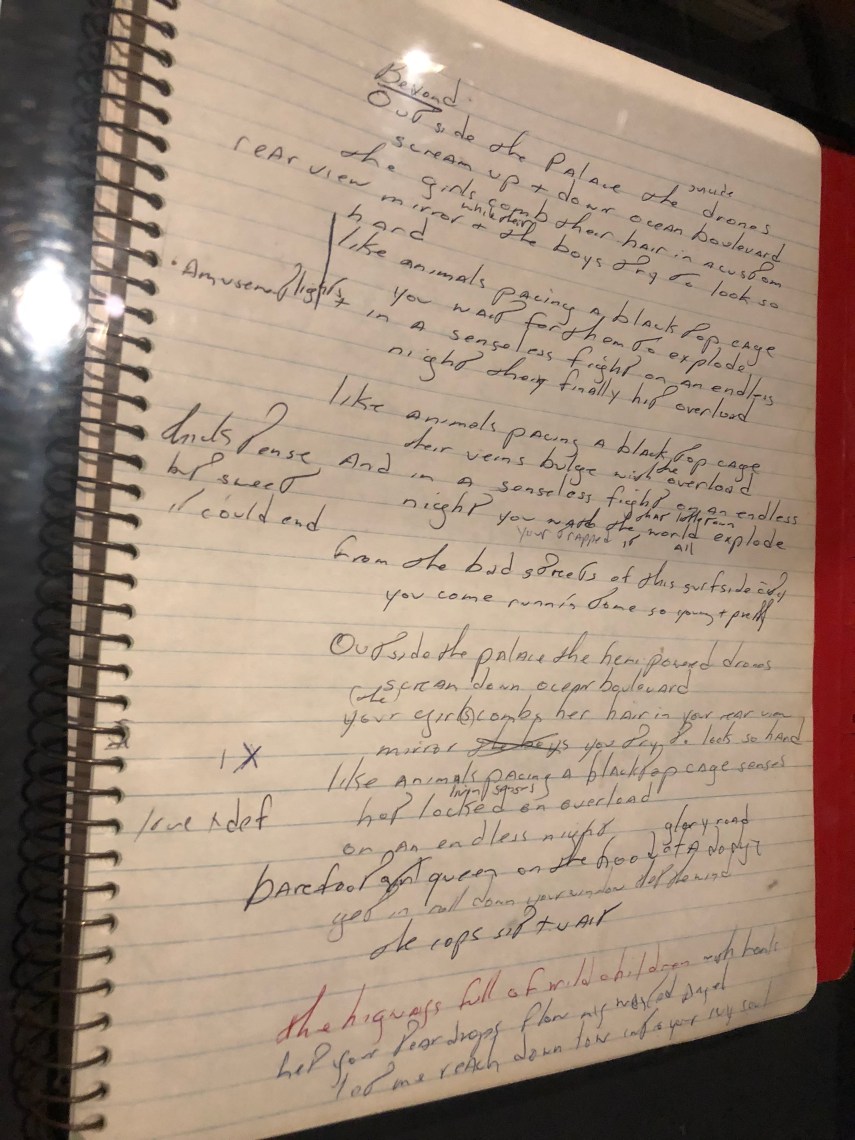 Beyond
Outside the Palace the drones
scream up + down ocean boulevard
the girls comb their hair in
rear view mirror + the boys try to look so
hard
like animals pacing a blacktop cage
Amusement lights
you wait for them to explode
+ in a senseless fight on an endless
night they finally hit overload
like animals pacing a blacktop cage
their veins bulge with the overload
And in a senseless fight on an endless
but sweet
night you the world explode
your trapped
All
it could end
from the bad streets of this surfside city
you come runnin so young + pretty
Outside the palace the hemi powered drones
scream down ocean boulevard
(the)
your girl(s) combs her hair in your rear view
mirror you try to look so hard
1X
like animals pacing a blacktop cage senses
locked on overload
love + def
on an endless night
glory road
barefoot queen on the hood of a
get in roll down your window let the wind
the cops sit + wait
the highways full of wild children
let your teardrops flow my angel
let me reach down low into your soul